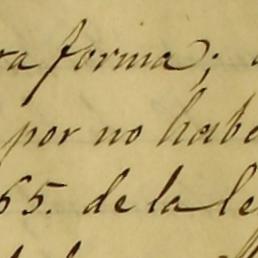 ra forma;
por no habe
65. de la le